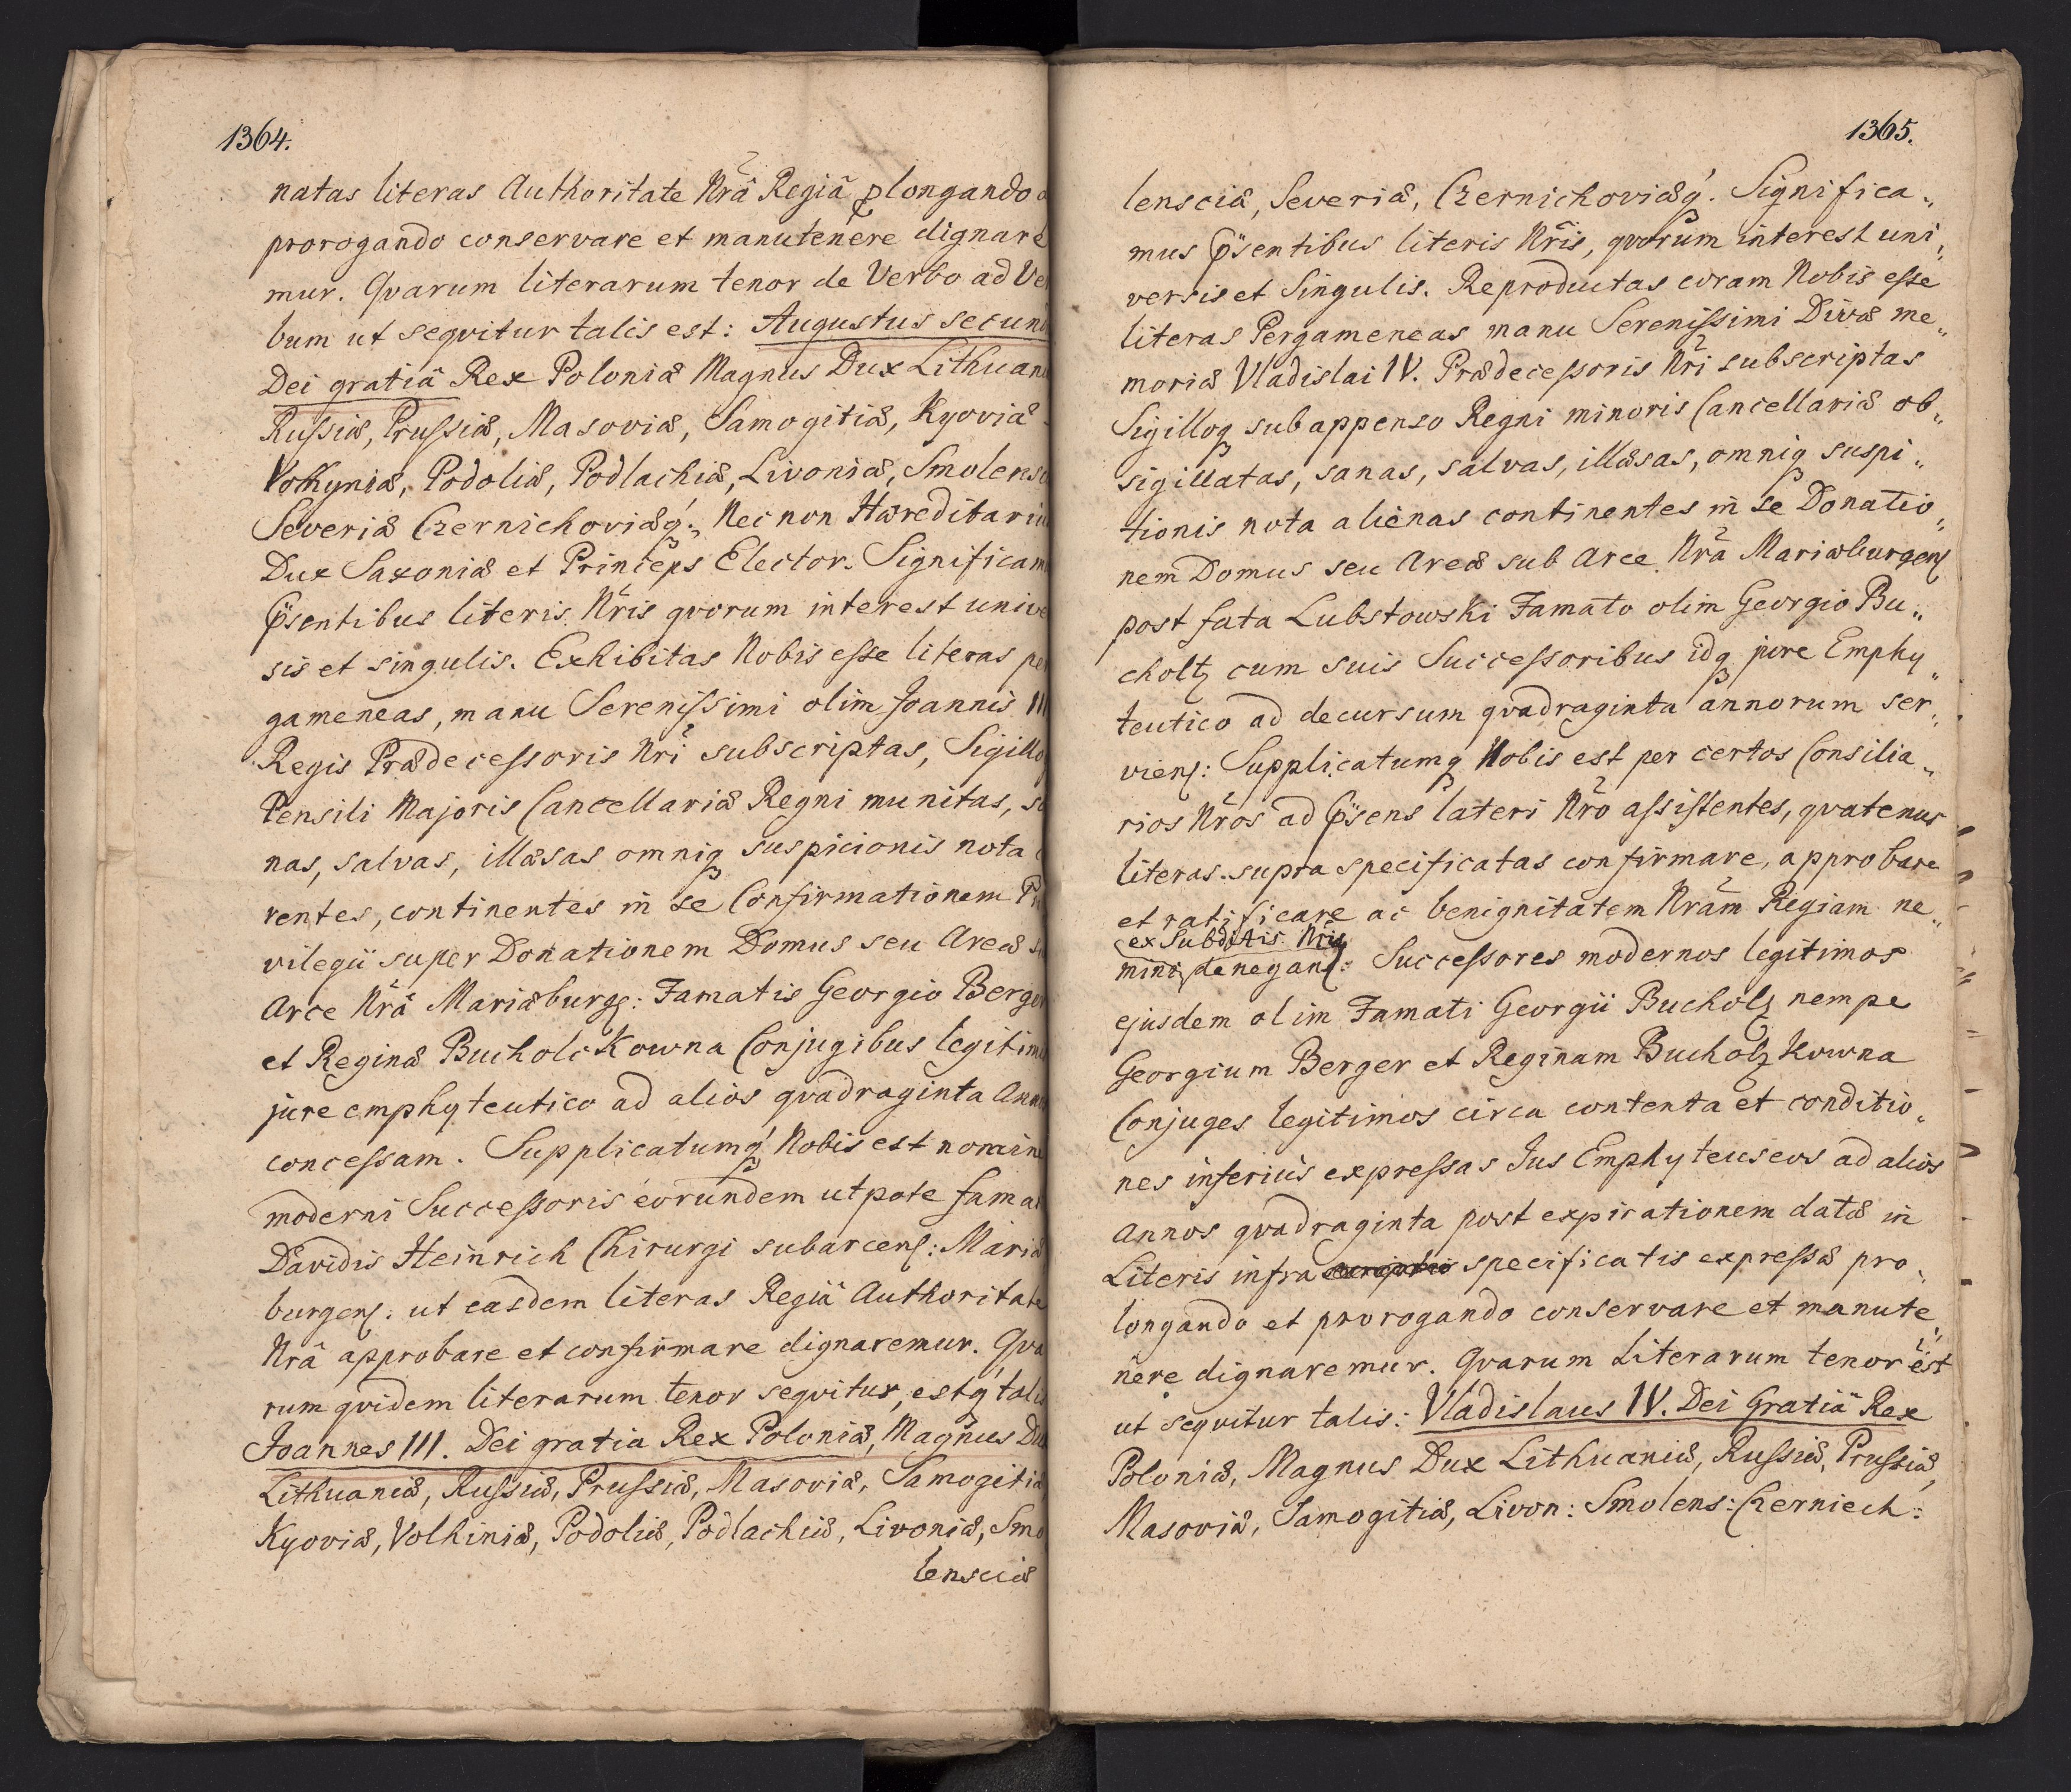 1364.
natas literas Authoritate Nrâ Regiâ plongando
prorogando conservare et manutenere dignare
mur. Qvarum literarum tenor de Verbo ad Ver
bum ut seqvitur talis est: Augustus secund
Dei gratiâ Rex Poloniæ Magnus Dux Lithuani
Russiæ, Prussiæ, Masoviæ, Samogitiæ, Kyoviæ
Volhyniæ, Podoliæ, Podlachiæ, Livoniæ, Smolensc
Severiæ Czernichoviæq́. Nec non Hæreditarius
Dux Saxoniæ et Princeps Elector. Significam
Psentibus literis Nris qvorum interest univer
sis et singulis. Exhibitas Nobis esse literas per
gameneas, manu Serenissimi olim Joannis III
Regis Prædecessoris Nri subscriptas, Sigilloq
Pensili Majoris Cancellariæ Regni munitas, sa
nas, salvas, illæsas omniq suspicionis nota c
rentes, continentes in se Confirmationem Pri
vilegii super Donationem Domus seu Areæ su
Arce Nrâ Mariæburg: Famatis Georgio Berger
et Reginæ Bucholckowna Conjugibus legitim
jure emphyteutico ad alios qvadraginta Ann
concessam. Supplicatumq́ Nobis est nomine
moderni Successoris eorundem utpote famat
Davidis Heinrich Chirurgi subarcens: Mariæ
burgens. ut easdem literas Regiâ Authoritate
Nrâ approbare et confirmare dignaremur. Qva
rum qvidem literarum tenor seqvitur, estq́ talis
Joannes III. Dei gratia Rex Poloniæ, Magnus Dux
Lithuaniæ, Russiæ, Prussiæ, Masoviæ, Samogitiæ
Kyoviæ, Volhiniæ, Podoliæ, Podlachiæ, Livoniæ, Smo
lensciæ
1365.
lensciæ, Severiæ, Czernichoviæq́. Significa„
mus Psentibus literis Nris, qvorum interest uni„
versis et Singulis. Reproductas coram Nobis esse
literas Pergameneas manu Serenissimi Divæ me„
moriæ Vladislai IV. Prædecessoris Nri subscriptas
Sigilloq subappenso Regni minoris Cancellariæ ob„
sigillatas, sanas, salvas, illæsas, omniq suspi„
tionis nota alienas continentes in se Donatio„
nem Domus seu Areæ sub Arce Nrâ Mariæburgens
post fata Lubstowski Famato olim Georgio Bu„
choltz cum suis Successoribus idq jure Emphy„
teutico ad decursum qvadraginta annorum ser„
viens: Supplicatumq Nobis est per certos Consilia„
rios Nros ad Psens lateri Nro assistentes, qvatenus
literas supra specificatas confirmare, approbare
et ratificare ac benignitatem Nram Regiam ne„
ex Subditis Nris
mini denegans: Successores modernos legitimos
ejusdem olim Famati Georgii Bucholz nempe
Georgium Berger et Reginam Bucholzkowna
Conjuges legitimos circa contenta et conditio„
nes inferius expressas Jus Emphyteuseos ad alios
Annos qvadraginta post expirationem datæ in
Literis infra specificatis expressæ pro„
longando et prorogando conservare et manute„
nere dignaremur. Qvarum Literarum tenor est
ut seqvitur talis: Vladislaus IV. Dei Gratiâ Rex
Poloniæ, Magnus Dux Lithuaniæ, Russiæ, Prussiæ,
Masoviæ, Samogitiæ, Livon: Smolens: Czerniech: